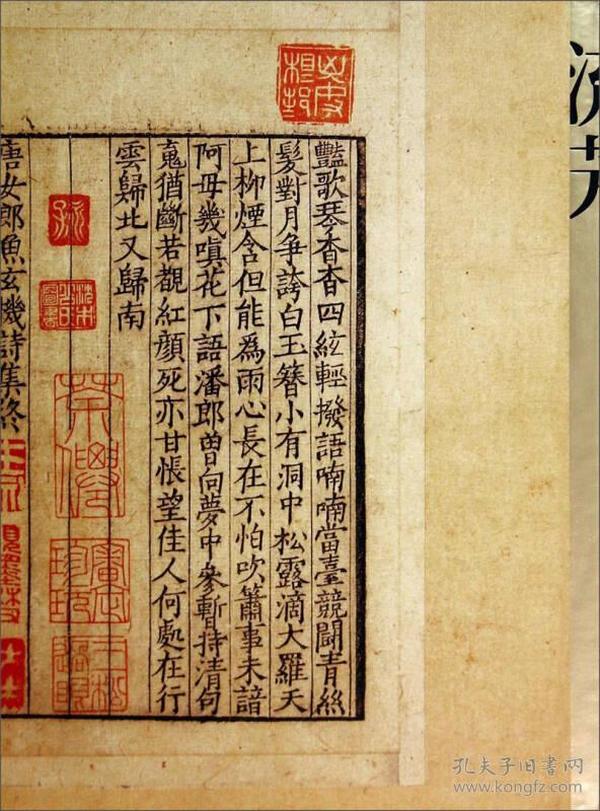 豔歌琴杳杳四絃輕撥語喃喃當臺競鬬青絲
髮對月爭誇白玉簪小有洞中松露滴大羅天
上柳煙含但能為雨心長在不怕吹簫事未諳
阿母幾嗔花下語潘郎曾向夢中參暫持清句
䰟猶斷若覩紅顏死亦甘悵望佳人何處在行
雲歸北又歸南
唐女郎魚玄機詩集終
孔夫子旧書网
www.kongfz.com